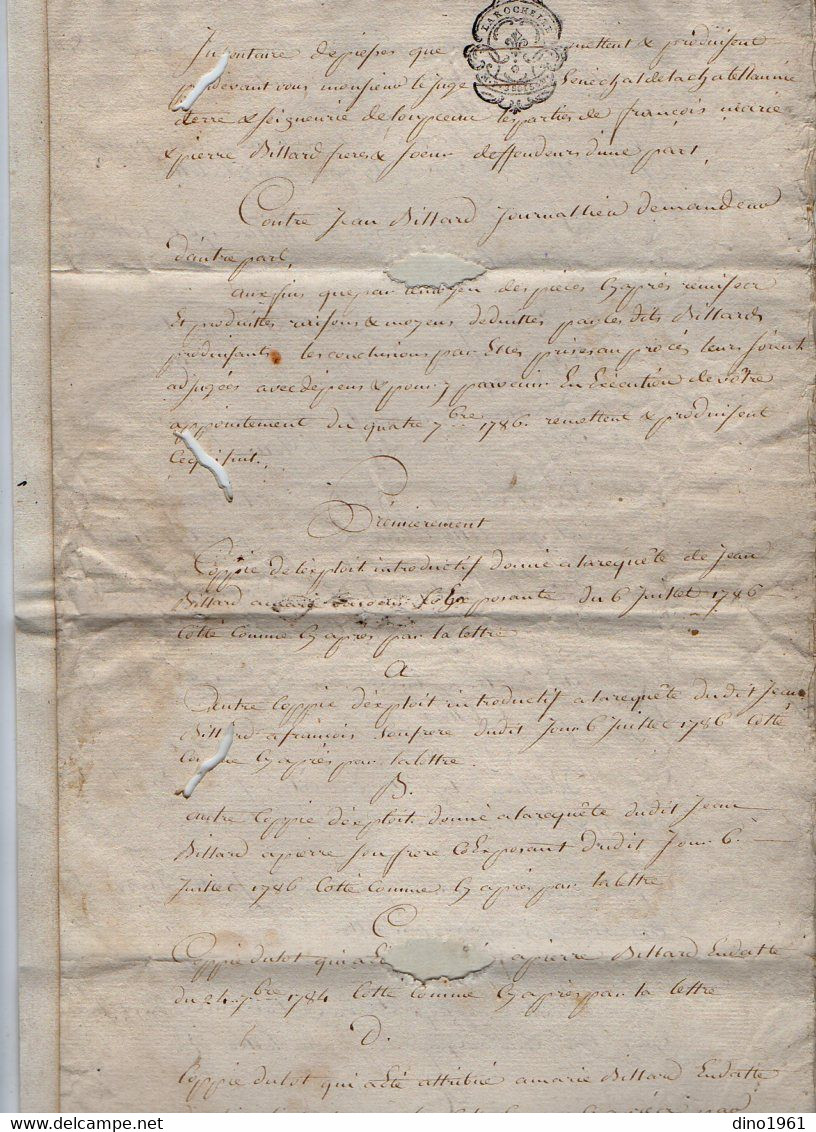 LA ROCHELLE
Inventaire de pieses que mettent & produisent
pardevant vous monsieur le juge Senéchal de la chatellannie
terre & seigneurie de loupseau les parties de françois, marie
& pierre Billard freres & soeur deffendeurs d'une part,
Contre Jean Billard Journallieu demandeur
d'autre part,
aux fins que par le moyen des pièces cy après remises
Et produittes raisons & moyens deduittes par les dits Billards
produisants les conclusions par Elles prises au procès leurs soient
adjugées avec dépens & pour y parvenir En Exécution de votre
appointement du quatre 7bre 1786 remettent & produisent
ce qui suit,
Prémierement
Coppie de l'exploit introductif donné a la requête de Jean
Billard a marie sa soeur Coexposante du 6 Juillet 1786
Cotté Comme cy après par la lettre
A
autre Coppie d'exploit introductif a la requête dudit Jean
Billard a francois son frere dudit Jour 6 Juillet 1786 Cotté
Comme cy après par la lettre.
B.
autre Coppie d'exploit donné a la requête dudit Jean
Billard a pierre son frere CoExposant dudit Jour 6
Juillet 1786 Cotté Comme cy après par la lettre
C
Coppie du lot qui a été a pierre Billard En datte
du 24 7bre 1784 Cotté Comme cy après par la lettre
D.
Coppie du lot qui a été attribué a marie Billard En datte
dino1961